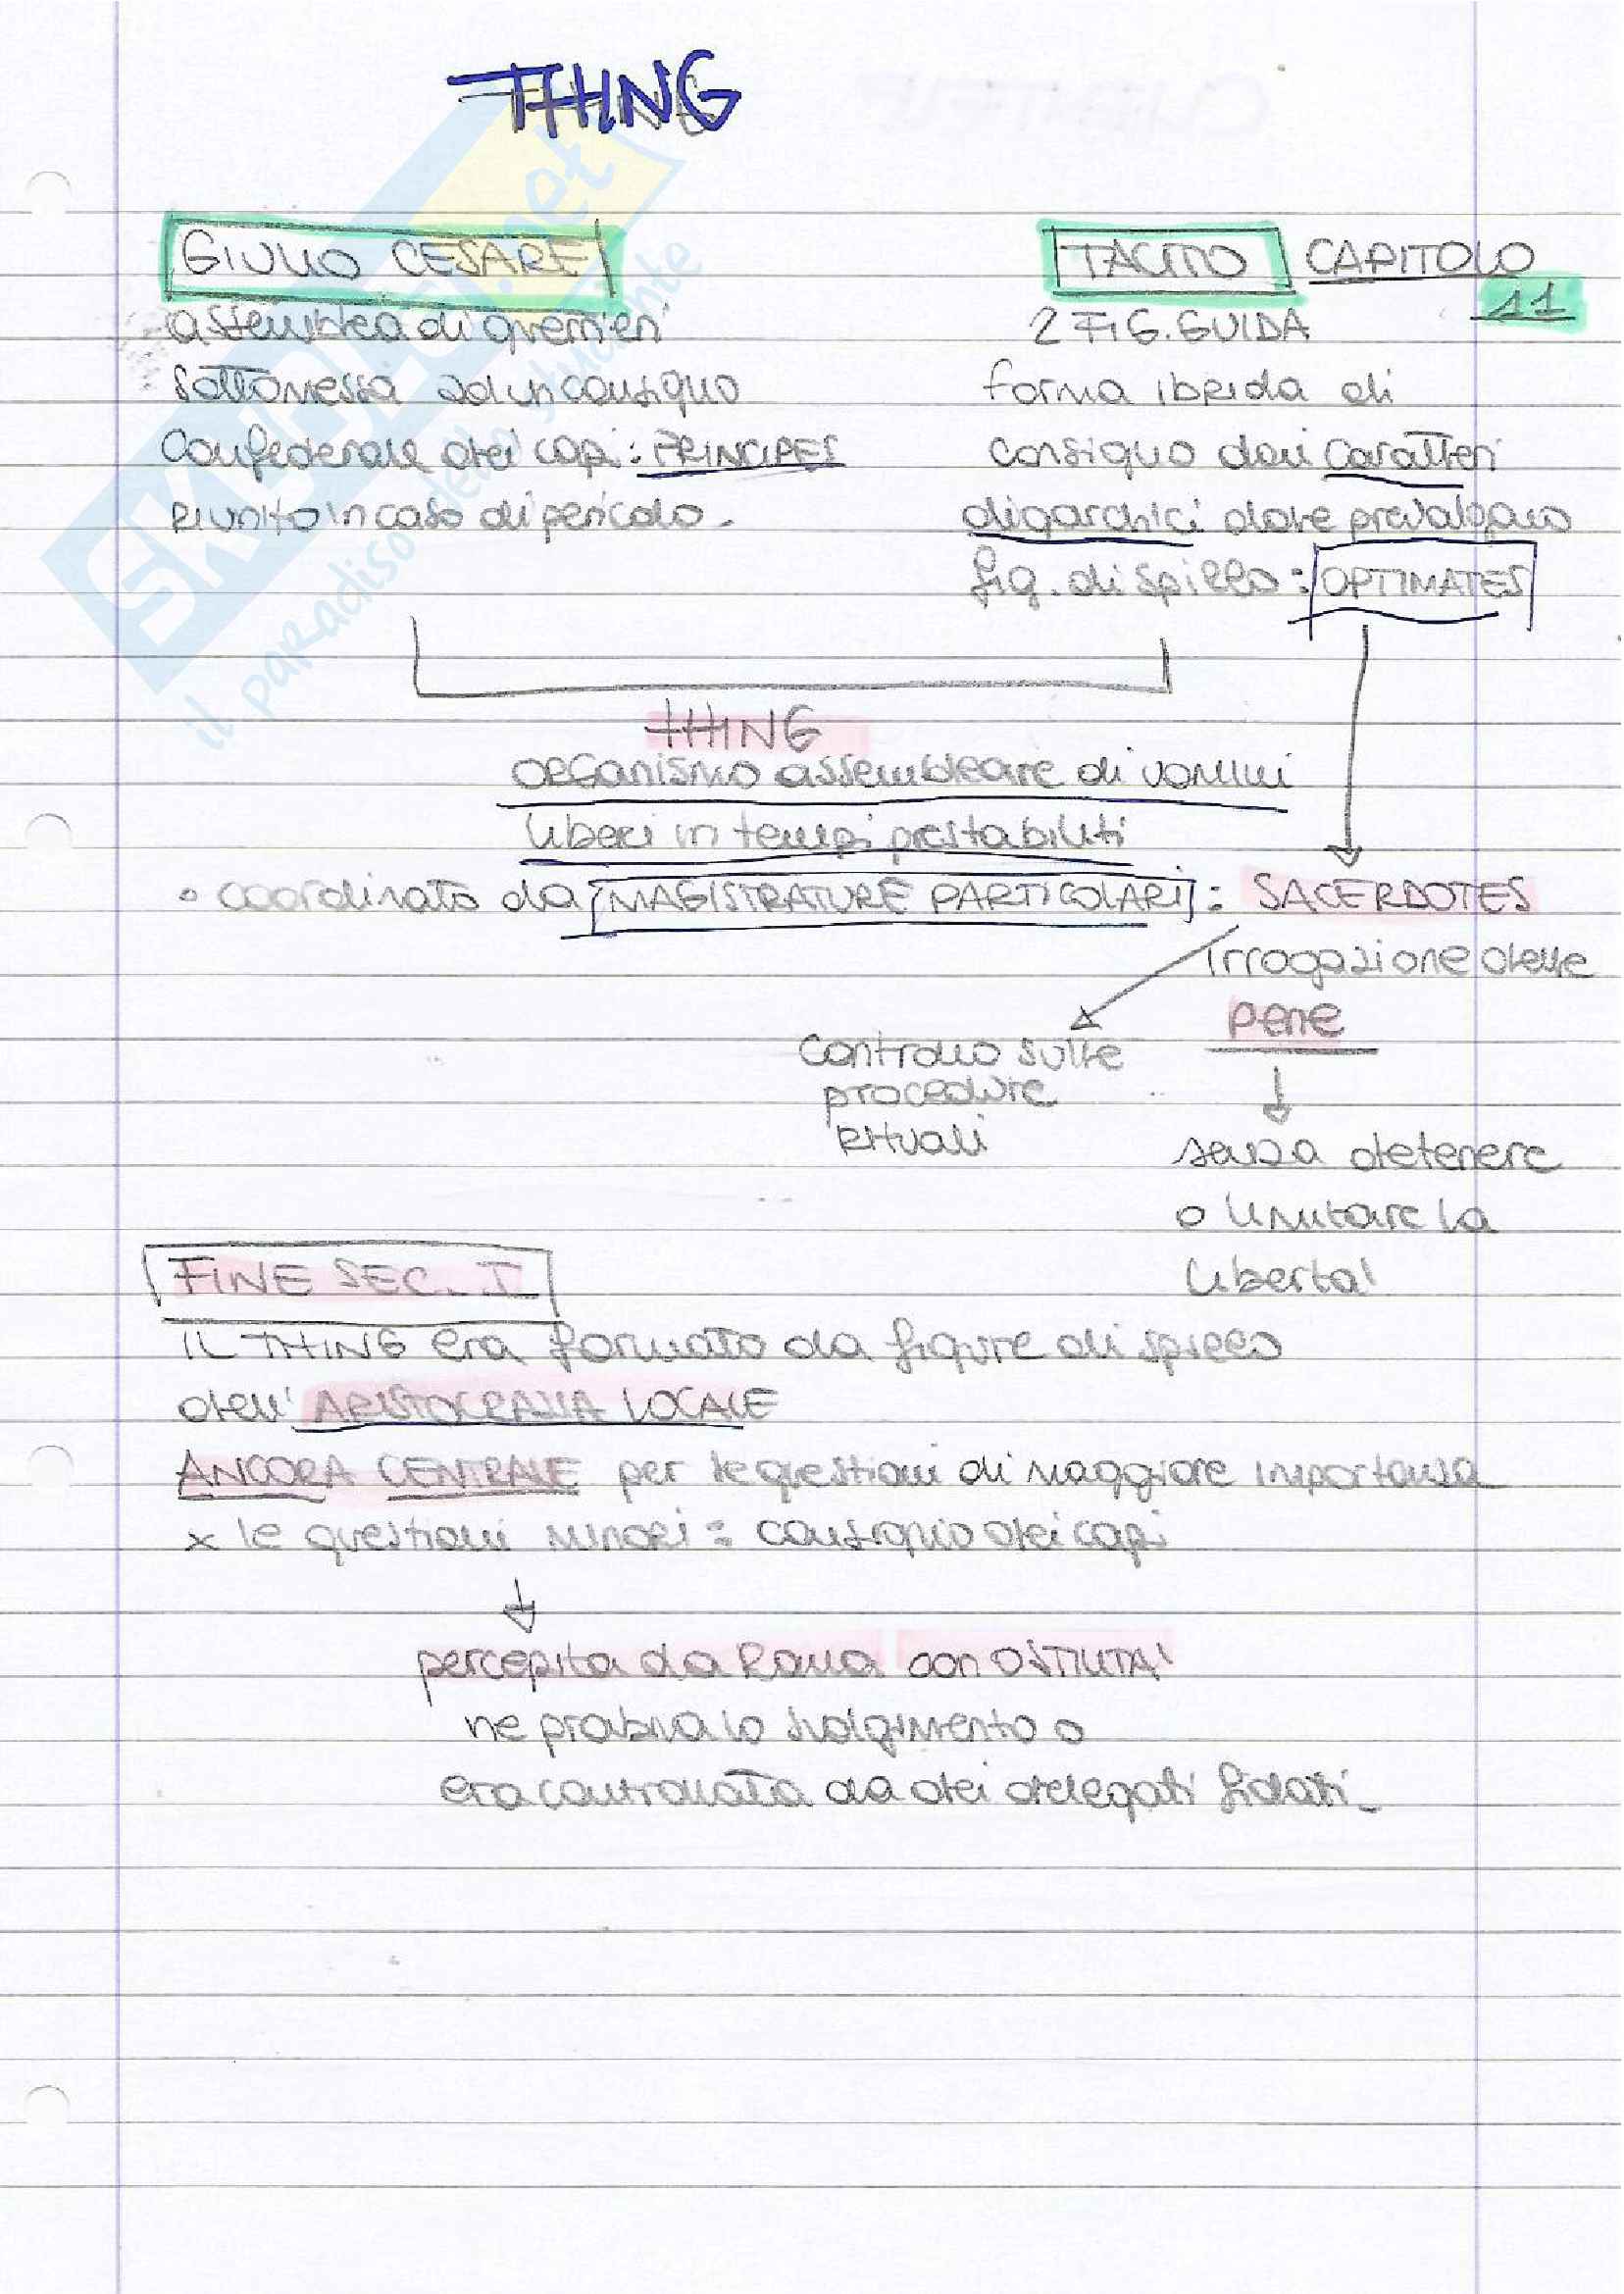 THING
GIULIO CESARE
assemblea di guerrieri
sottomessa ad un consiglio
confederale dei capi: PRINCIPES
riunito in caso di pericolo.
TACITO CAPITOLO
11
2 FIG. GUIDA
forma ibrida di
consiglio dai caratteri
oligarchici dove prevalgono
fig. di spicco: OPTIMATES
THING
organismo assembleare di uomini
liberi in tempi prestabiliti
• coordinato da MAGISTRATURE PARTICOLARI: SACERDOTES
irrogazione delle
pene
controllo sulle
procedure
rituali
senza detenere
o limitare la
libertà
FINE SEC. I
IL THING era formato da figure di spicco
dell'ARISTOCRAZIA LOCALE
ANCORA CENTRALE per le questioni di maggiore importanza
x le questioni minori = consiglio dei capi
percepita da Roma con OSTILITA'
ne proibiva lo svolgimento o
era controllata da dei delegati fidati.
SKUOLA.net
il paradiso dello studente